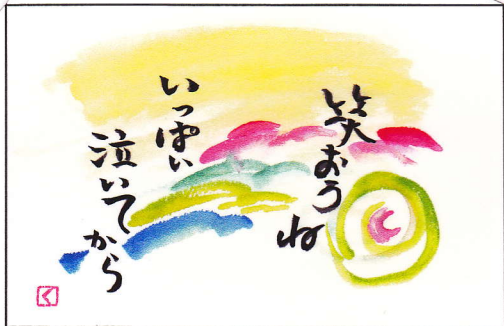 笑おうね
いっぱい
泣いてから
く